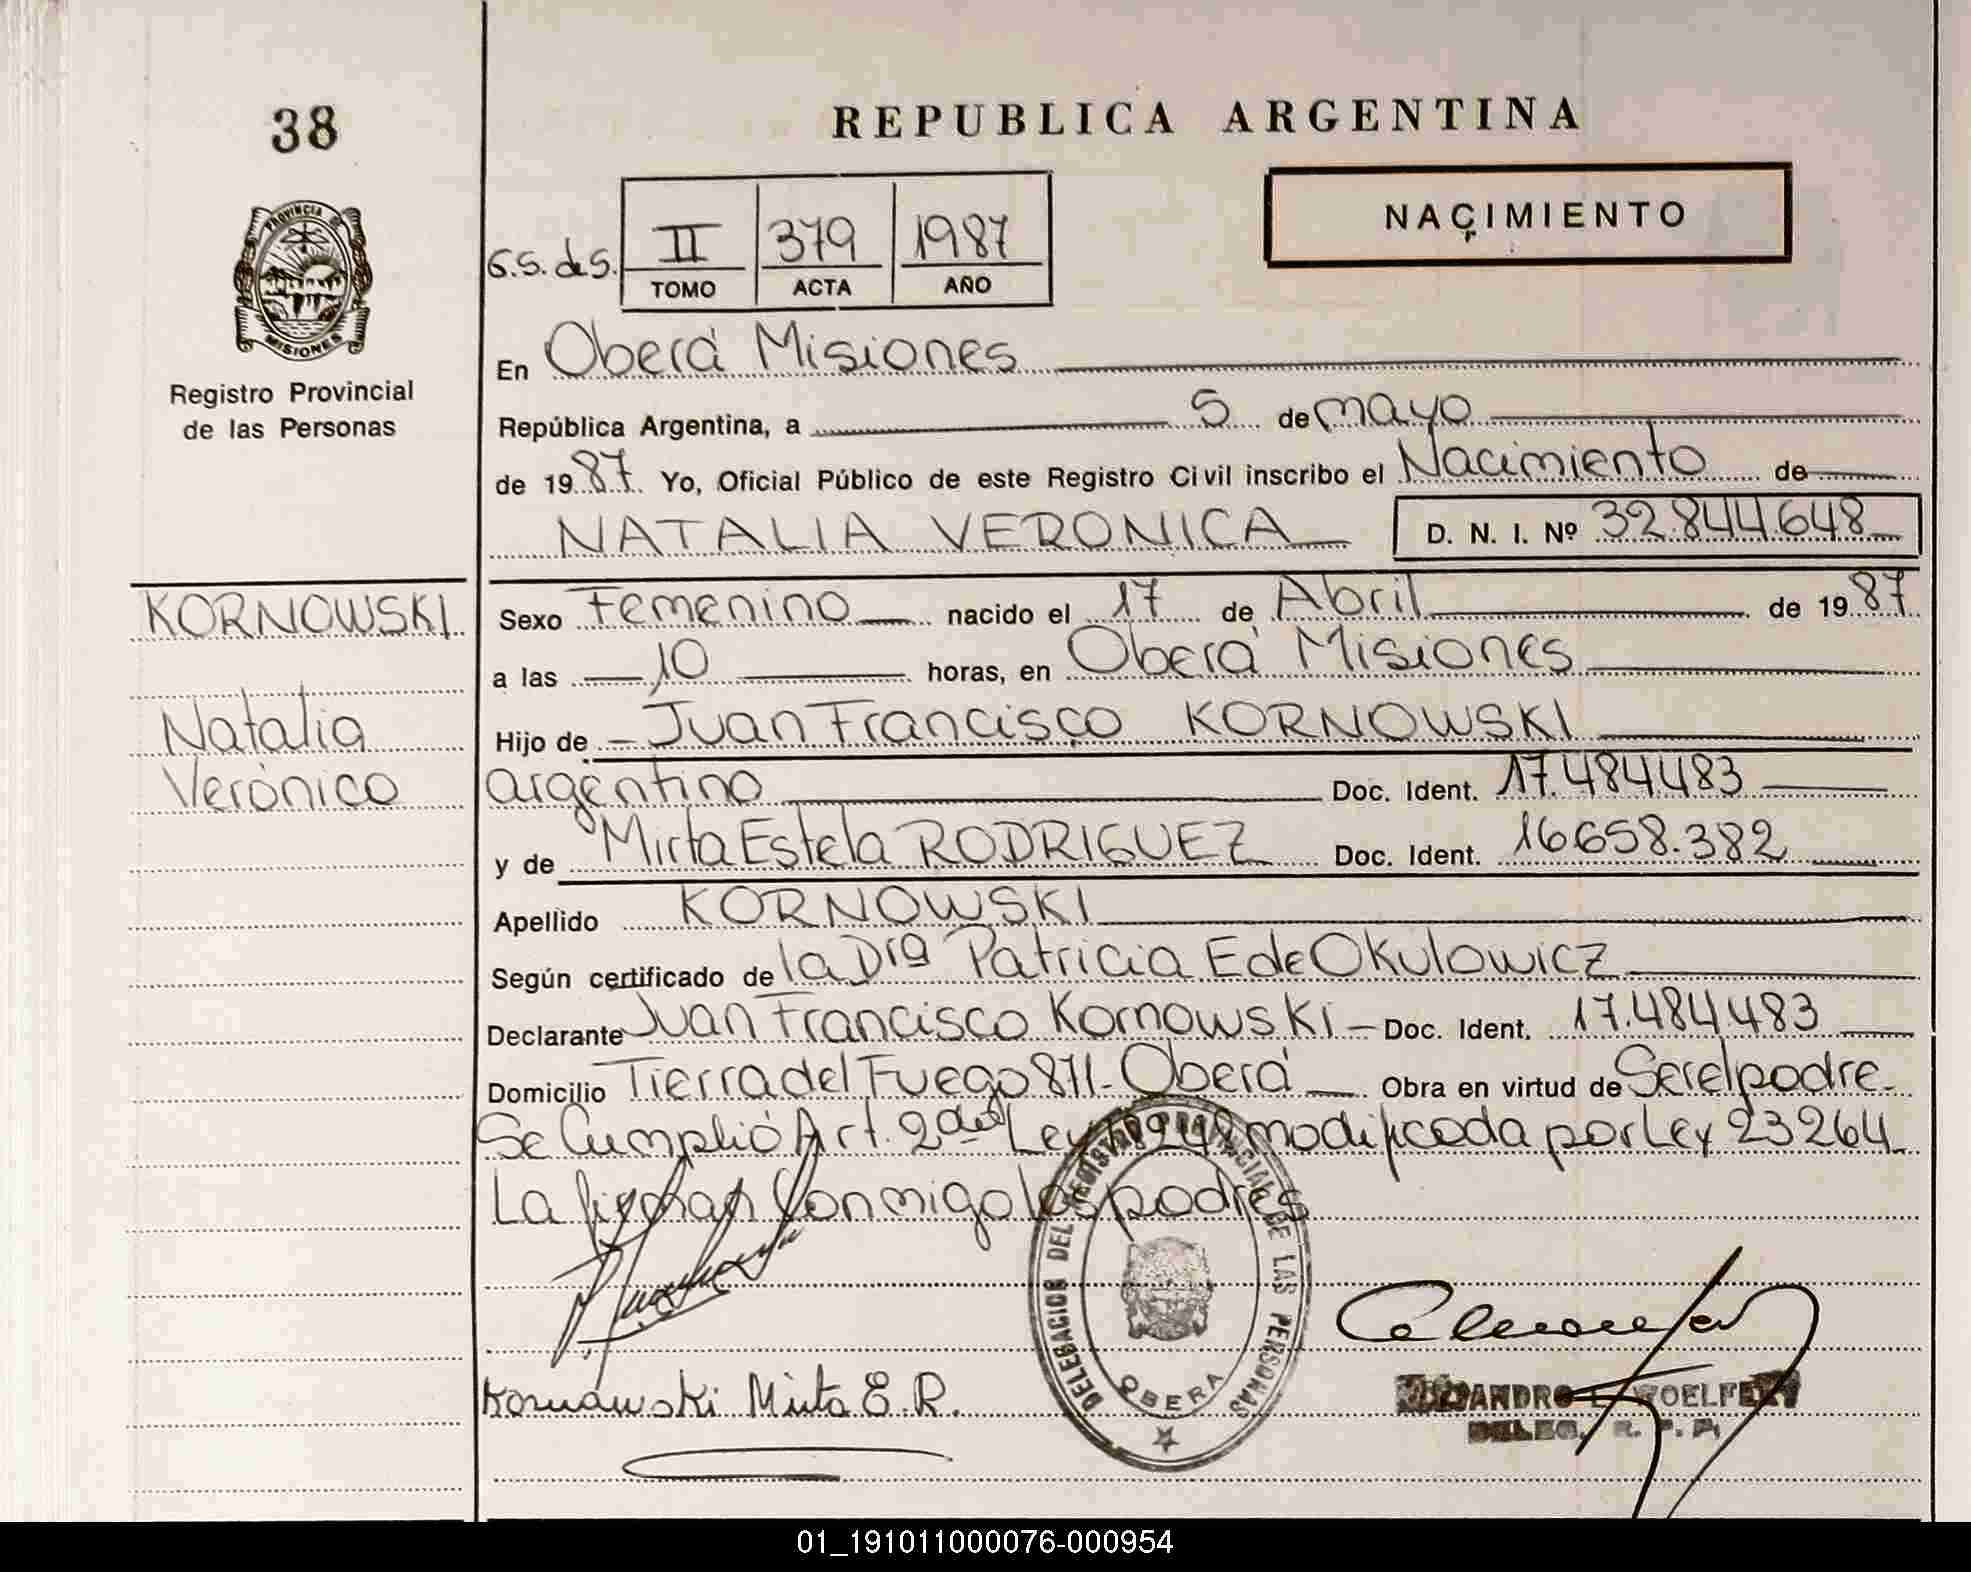 38
REPUBLICA ARGENTINA
NACIMIENTO
PROVINCIA DE
MISIONES
Registro Provincial
de las Personas
G.S. de S. II 379 1987
TOMO ACTA AÑO
En Oberá Misiones
República Argentina, a 5 de mayo
de 1987. Yo, Oficial Público de este Registro Civil inscribo el Nacimiento de
NATALIA VERONICA D. N. I. Nº 32.844.648
KORNOWSKI
Natalia
Verónica
Sexo Femenino nacido el 17 de Abril de 1987.
a las 10 horas, en Oberá Misiones
Hijo de Juan Francisco KORNOWSKI
argentino Doc. Ident. 17.484.483
y de Mirta Estela RODRIGUEZ Doc. Ident. 16.658.382
Apellido KORNOWSKI
Según certificado de la Drª Patricia E de Okulowicz
Declarante Juan Francisco Kornowski - Doc. Ident. 17.484.483
Domicilio Tierra del Fuego 871 - Oberá Obra en virtud de Ser el padre.
Se Cumplió Art. 2º del Ley 18248 modificada por Ley 23264
La firman Conmigo los padres
DELEGACION DEL REGISTRO PROVINCIAL DE LAS PERSONAS
OBERA
Kornowski Mirta E. R.
DELEG. R. P. P.
01_191011000076-000954